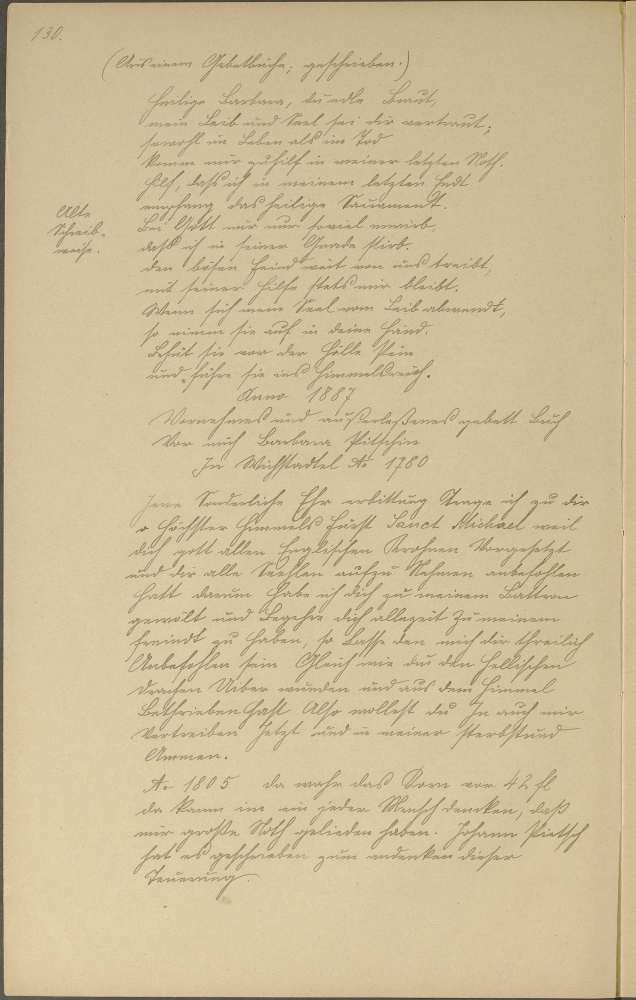 130.
(Aus einem Gebetbuche; geschrieben.)
Heilige Barbara, du edle Braut,
mein Leib und Seel sei dir vertraut;
sowohl im Leben als im Tod
komm mir zuhilf in meiner letzten Noth.
Hilf, daß ich in meinem letzten Endt
empfang das heilige Sacrament.
Alte Schreib-
weise.
Bei Gott mir nur soviel erwirb,
daß ich in seiner Gnade stirb.
den bösen Feind weit von uns treibt,
mit seiner Hilfe stets mir bleibt.
Wenn sich mein Seel vom Leib abwendt,
so nimm sie auf in deine Händ.
Behüt sie vor der Hölle Pein
und führe sie ins Himmelreich.
Anno 1887
Vornehmes und außerleßenes gebett Buch
Vor mich Barbara Pitschin
In Wichstadtel Ao 1780
Jene Sonderliche Ehr erbittung Trage ich zu dir
o Höchster Himmels Fürst Sanct Michael weil
dich gott allen Englischen Krohnen Vorgesetzt
und dir alle Seehlen aufzu Nehmen anbefohlen
hatt darum habe ich dich zu meinem Battron
gewölt und Begehre dich allezeit Zu meinem
freindt zu haben, so Lasse den mich dir threilich
Anbefohlen sein Gleich wie du den hellischen
drachen Uiber wunden und aus dem Himmel
Bethrieben hast Also wollest du In auch mir
Vertreiben Jetzt und in meiner sterbstund
Ammen.
Ao 1805 da wahr das Korn vor 42 fl
da kann im ein jeder Mensch dencken, daß
mir große Noth gelieden haben. Johann Pietsch
hat es geschrieben zum andenken dieser
Teuerung.